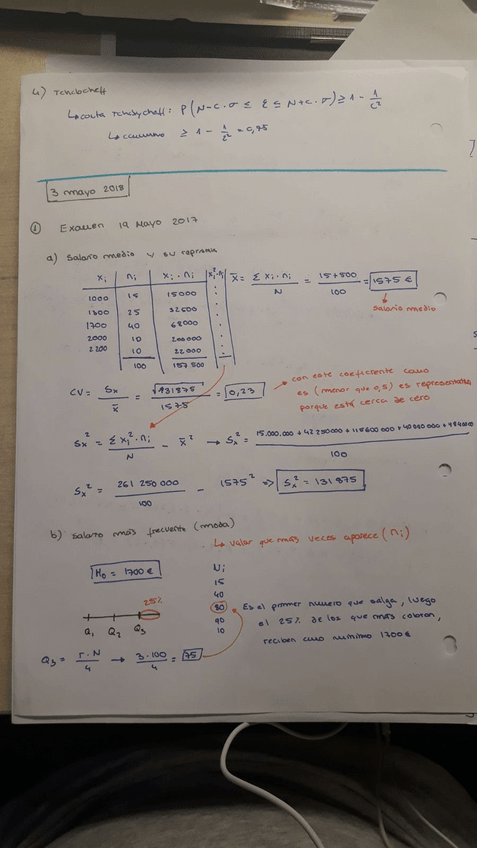 4) Tchebcheff
↳ cota Tchebycheff: P(N-c.σ ≤ ξ ≤ N+c.σ) ≥ 1 - 1/c²
≥ 1 - 1/c² = 0,75
3 mayo 2018
① Examen 19 Mayo 2017
a) Salario medio y su represen
xi | ni | xi . ni | xi² . ni
1000 | 15 | 15000
1300 | 25 | 32500
1700 | 40 | 68000
2000 | 10 | 200000
2200 | 10 | 22000
100 | 157500
x̄ = Σ xi . ni / N = 157500 / 100 = 1575 €
salario medio
CV = Sx / x̄ = √131875 / 1575 = 0,23
→ con este coeficiente como
es (menor que 0,5) es representativo
porque está cerca de cero
Sx² = Σ xi² . ni / N - x̄² → Sx² = 15.000.000 + 42250000 + 115600000 + 40000000 + 484000 / 100
Sx² = 261 250 000 / 100 - 1575² => Sx² = 131875
b) Salario más frecuente (moda)
↳ valor que más veces aparece (ni)
Mo = 1700 €
Ni
15
40
80
90
10
25%
Q1 Q2 Q3
Es el primer numero que salga, luego
el 25% de los que más cobran,
reciben como mínimo 1700 €
Q3 = r . N / 4 → 3 . 100 / 4 = 75